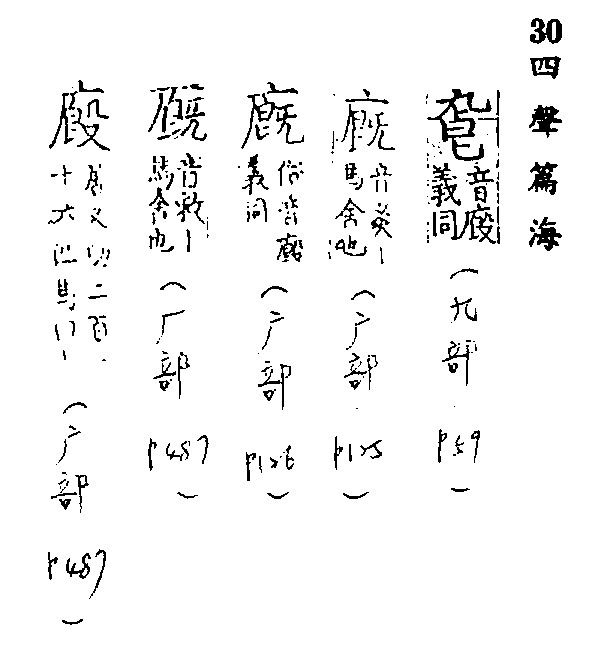 30四聲篇海
音廄義同
(九部 P59)
廐
馬舍也
(广部 P125)
廐
俗音廄義同
(广部 P126)
音救
馬舍也
(厂部 P487)
廏
居又切二百
十六匹馬
(广部 P487)